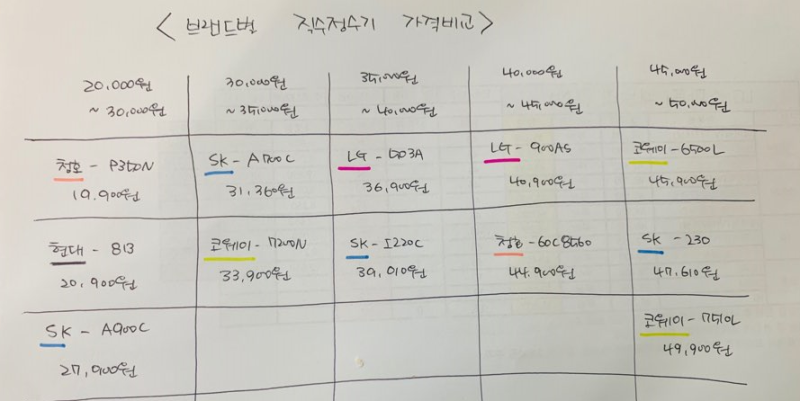 < 브랜드별 직수정수기 가격비교 >
20,000원 30,000원 35,000원 40,000원 45,000원
~ 30,000원 ~ 35,000원 ~ 40,000원 ~ 45,000원 ~ 50,000원
청호 - P350N SK - A700C LG - 503A LG - 900AS 코웨이 - 6500L
19,900원 31,360원 36,900원 40,900원 45,900원
현대 - 813 코웨이 - 7200N SK - I220C 청호 - 60C8560 SK - 230
20,900원 33,900원 39,010원 44,900원 47,610원
SK - A900C 코웨이 - 7510L
27,900원 49,900원